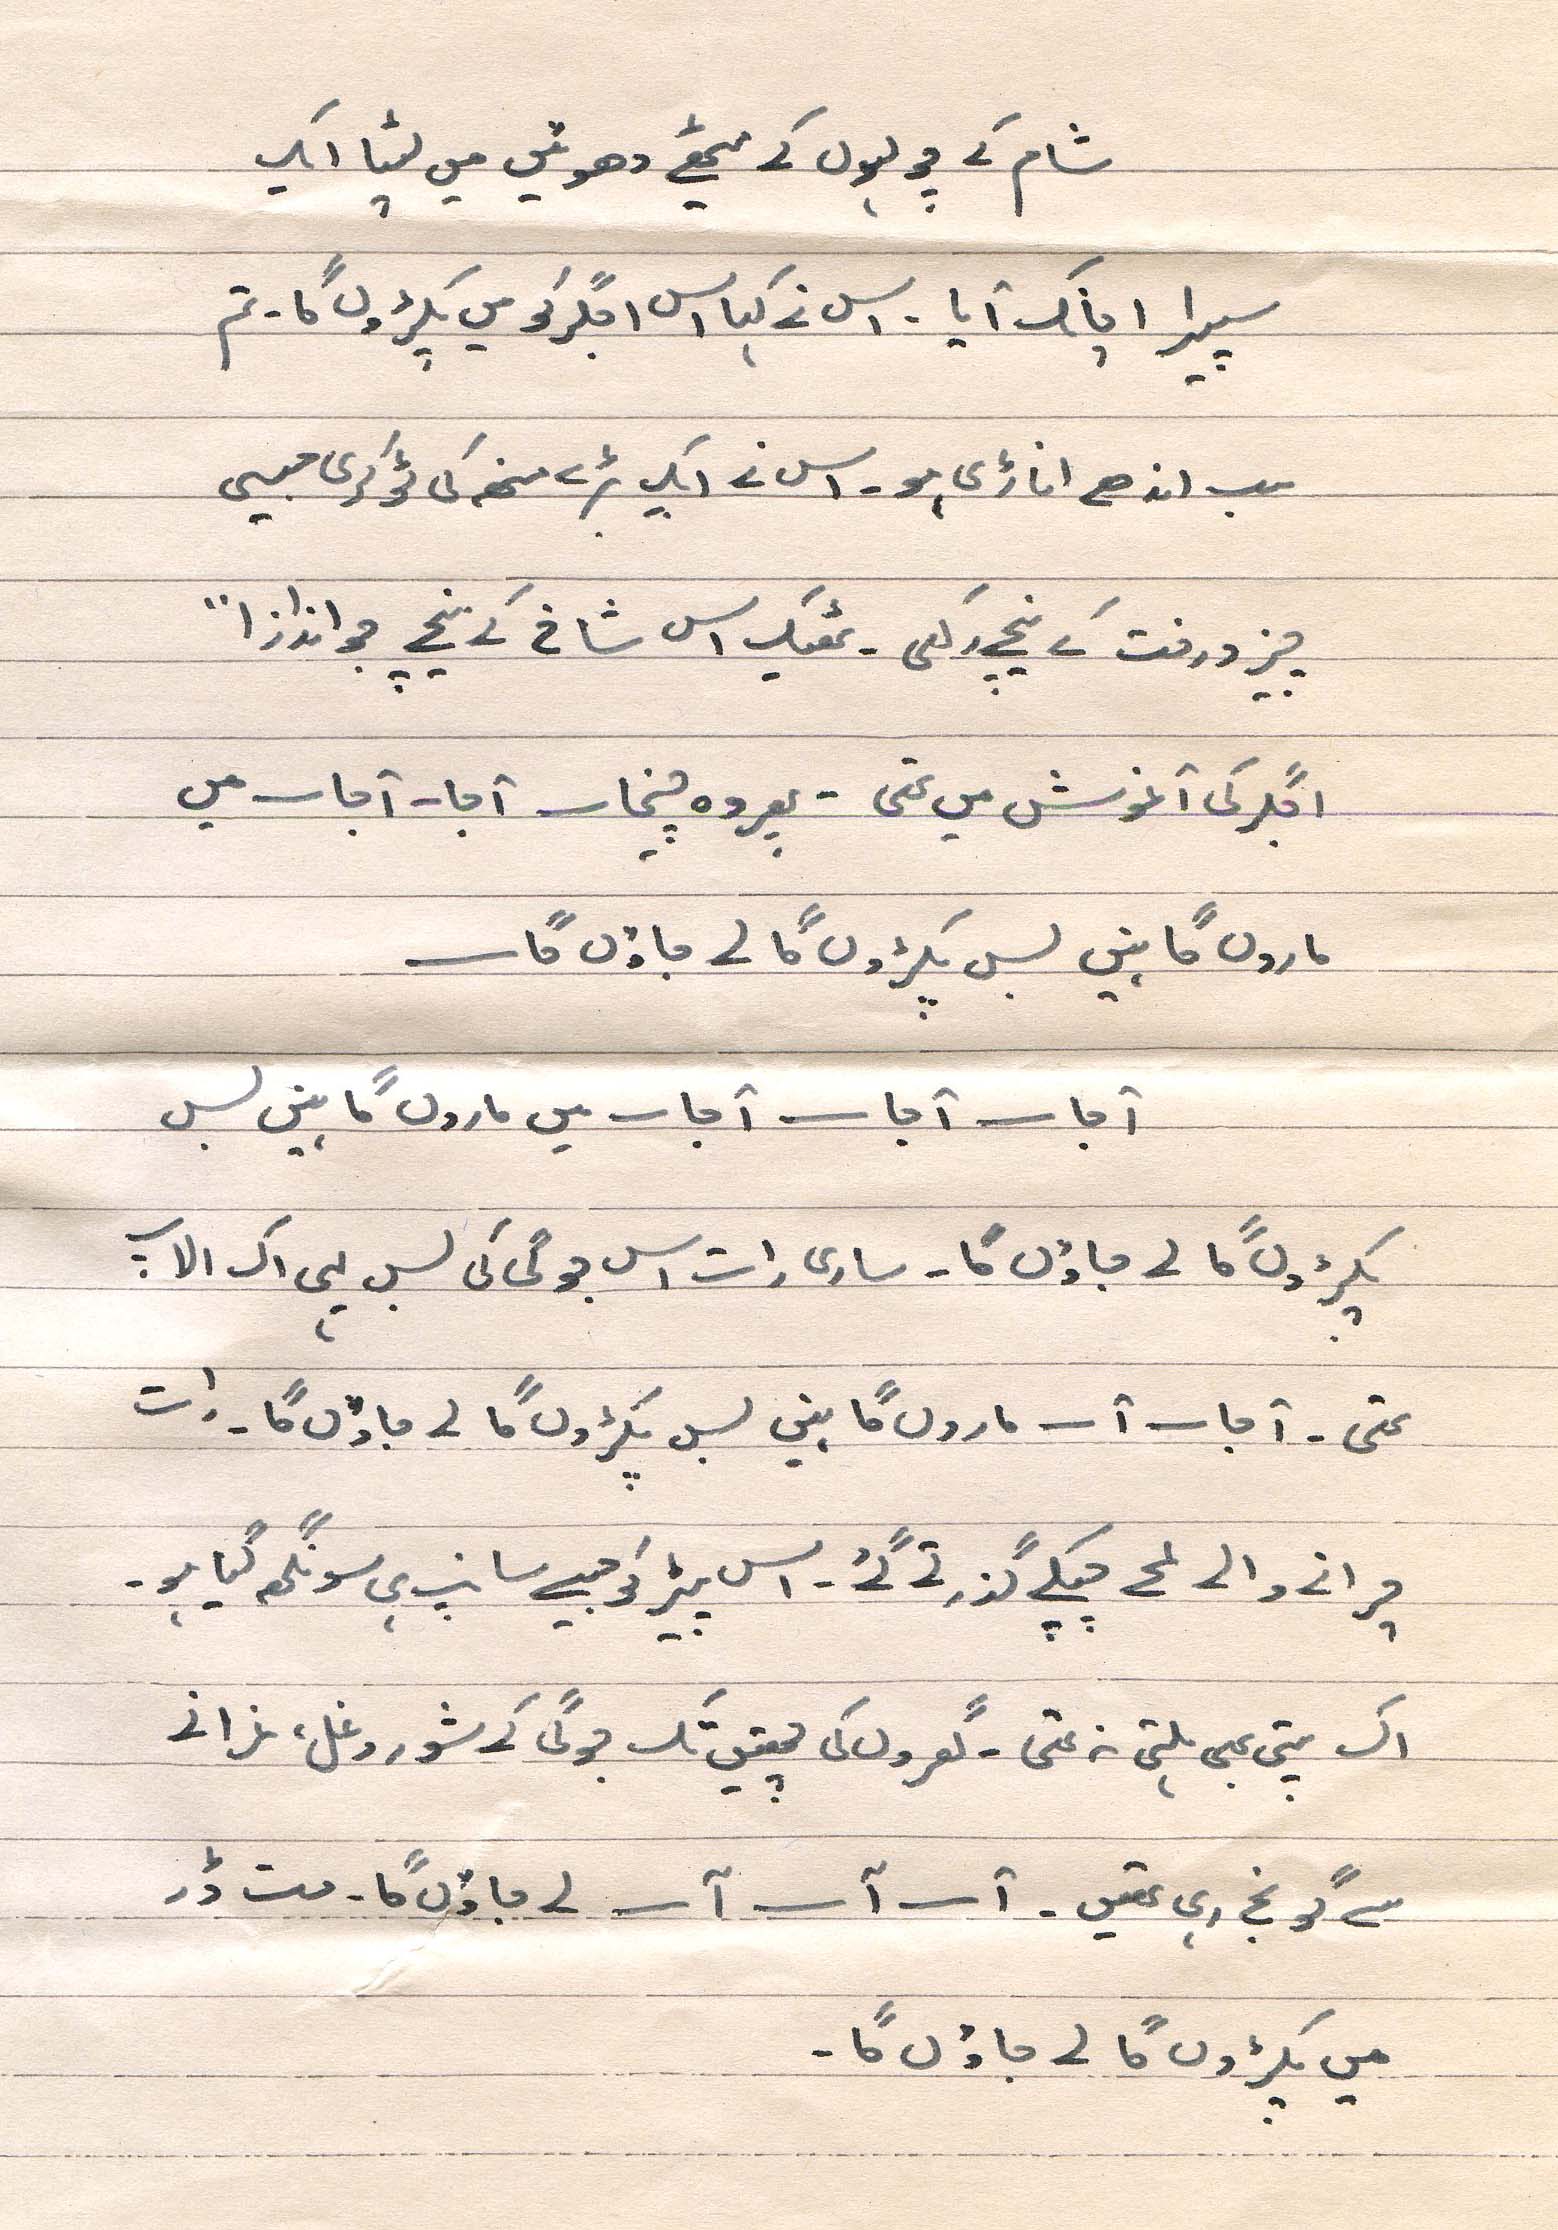 شام کے چولہوں کے میٹھے دھوئیں میں لپٹا ایک
سپیرا اچانک آیا۔ اس نے کہا اس اجگر کو میں پکڑوں گا۔ تم
سب اندھے اناڑی ہو۔ اس نے ایک بڑے منھ کی ٹوکری جیسی
چیز درخت کے نیچے رکھی۔ ٹھیک اس شاخ کے نیچے جو اندازاً
اجگر کی آغوش میں تھی ۔ پھر وہ چیخا ــ آجا۔ آجا ــ میں
ماروں گا نہیں بس پکڑوں گا لے جاؤں گا ــ
آجا ــ آجا ــ آجا ــ میں ماروں گا نہیں بس
پکڑوں گا لے جاؤں گا۔ ساری رات اس جوگی کی بس یہی اک الاپ
تھی۔ آجا ــ آ ــ ماروں گا نہیں بس پکڑوں گا لے جاؤں گا۔ رات
چرانے والے لمحے چپکے گذرتے گئے۔ اس پیڑ کو جیسے سانپ ہی سونگھ گیا ہو۔
اک پتی بھی ہلتی نہ تھی۔ گھروں کی چھتیں تک جوگی کے شور و غل، غرانے
سے گونج رہی تھیں۔ آ ــ آ ــ آ ــ لے جاؤں گا۔ مت ڈر
میں پکڑوں گا لے جاؤں گا۔